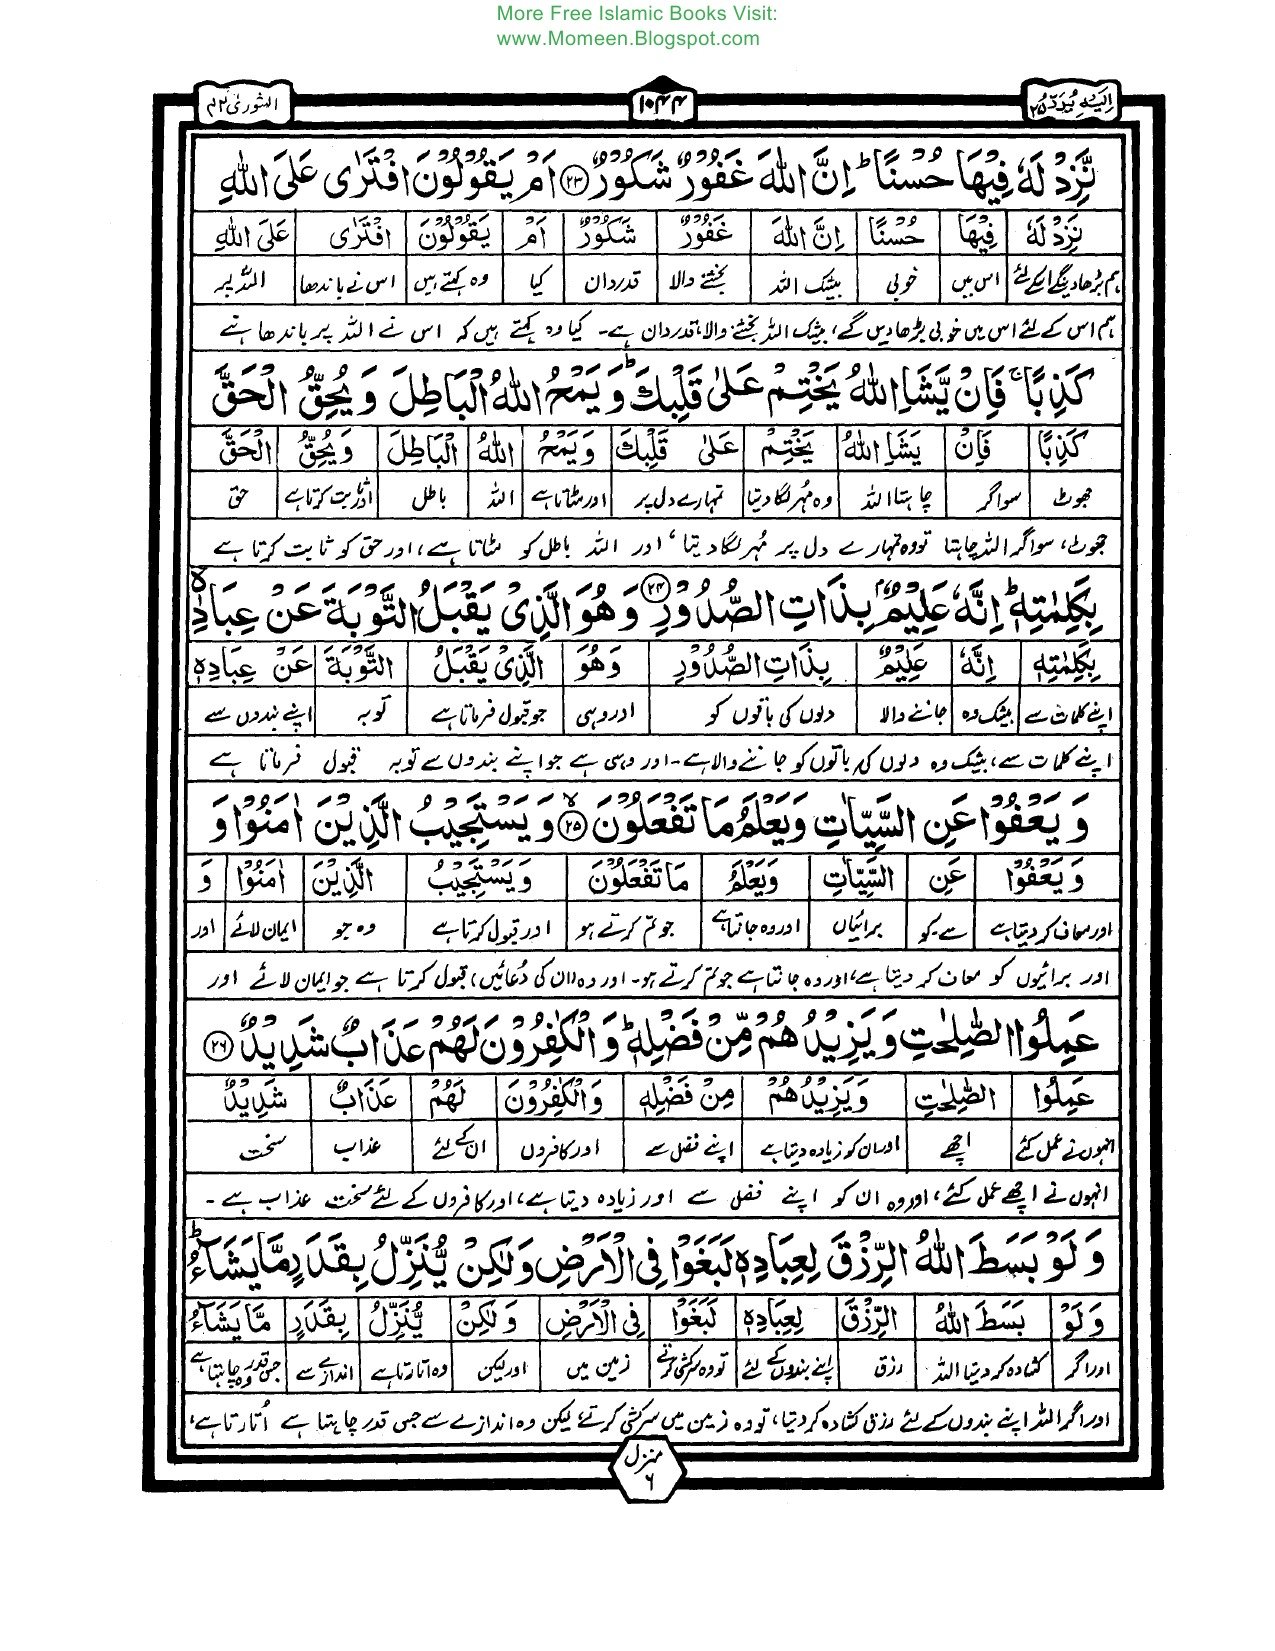 More Free Islamic Books Visit:
www.Momeen.Blogspot.com
اِلَيْهِ يُرَدُّ ۲۵
۱۰۴۴
الشورىٰ ۴۲
نَّزِدْ لَهٗ فِيْهَا حُسْنًا ؕ اِنَّ اللّٰهَ غَفُوْرٌ شَكُوْرٌ ﴿۲۳﴾ اَمْ يَقُوْلُوْنَ افْتَرٰى عَلَى اللّٰهِ
نَزِدْ لَهٗ فِيْهَا حُسْنًا اِنَّ اللّٰهَ غَفُوْرٌ شَكُوْرٌ اَمْ يَقُوْلُوْنَ افْتَرٰى عَلَى اللّٰهِ
ہم بڑھا دینگے اسکے لئے اس میں خوبی بیشک اللہ بخشنے والا قدردان کیا وہ کہتے ہیں اس نے باندھا اللہ پر
ہم اس کے لئے اس میں خوبی بڑھا دیں گے، بیشک اللہ بخشنے والا، قدردان ہے۔ کیا وہ کہتے ہیں کہ اس نے اللہ پر باندھا ہے
كَذِبًا ۚ فَاِنْ يَّشَاِ اللّٰهُ يَخْتِمْ عَلٰى قَلْبِكَ ؕ وَيَمْحُ اللّٰهُ الْبَاطِلَ وَ يُحِقُّ الْحَقَّ
كَذِبًا فَاِنْ يَشَاِ اللّٰهُ يَخْتِمْ عَلٰى قَلْبِكَ وَيَمْحُ اللّٰهُ الْبَاطِلَ وَيُحِقُّ الْحَقَّ
جھوٹ سو اگر چاہتا اللہ وہ مُہر لگا دیتا تمہارے دل پر اور مٹاتا ہے اللہ باطل اور ثابت کرتا ہے حق
جھوٹ، سو اگر اللہ چاہتا تو وہ تمہارے دل پر مُہر لگا دیتا، اور اللہ باطل کو مٹاتا ہے، اور حق کو ثابت کرتا ہے
بِكَلِمٰتِهٖ ؕ اِنَّهٗ عَلِيْمٌۢ بِذَاتِ الصُّدُوْرِ ﴿۲۴﴾ وَهُوَ الَّذِىْ يَقْبَلُ التَّوْبَةَ عَنْ عِبَادِهٖ
بِكَلِمٰتِهٖ اِنَّهٗ عَلِيْمٌ بِذَاتِ الصُّدُوْرِ وَهُوَ الَّذِىْ يَقْبَلُ التَّوْبَةَ عَنْ عِبَادِهٖ
اپنے کلمات سے بیشک وہ جاننے والا دلوں کی باتوں کو اور وہی جو قبول فرماتا ہے توبہ اپنے بندوں سے
اپنے کلمات سے، بیشک وہ دلوں کی باتوں کو جاننے والا ہے۔ اور وہی ہے جو اپنے بندوں سے توبہ قبول فرماتا ہے
وَ يَعْفُوْا عَنِ السَّيِّاٰتِ وَيَعْلَمُ مَا تَفْعَلُوْنَ ﴿۲۵﴾ۙ وَ يَسْتَجِيْبُ الَّذِيْنَ اٰمَنُوْا وَ
وَ يَعْفُوْا عَنِ السَّيِّاٰتِ وَيَعْلَمُ مَا تَفْعَلُوْنَ وَيَسْتَجِيْبُ الَّذِيْنَ اٰمَنُوْا وَ
اور معاف کر دیتا ہے سے۔کو برائیاں اور وہ جانتا ہے جو تم کرتے ہو اور قبول کرتا ہے وہ جو ایمان لائے اور
اور برائیوں کو معاف کر دیتا ہے، اور وہ جانتا ہے جو تم کرتے ہو۔ اور وہ (ان کی دُعائیں) قبول کرتا ہے جو ایمان لائے اور
عَمِلُوا الصّٰلِحٰتِ وَ يَزِيْدُهُمْ مِّنْ فَضْلِهٖ ؕ وَ الْكٰفِرُوْنَ لَهُمْ عَذَابٌ شَدِيْدٌ ﴿۲۶﴾
عَمِلُوا الصّٰلِحٰتِ وَ يَزِيْدُهُمْ مِنْ فَضْلِهٖ وَالْكٰفِرُوْنَ لَهُمْ عَذَابٌ شَدِيْدٌ
انہوں نے عمل کئے اچھے اور ان کو زیادہ دیتا ہے اپنے فضل سے اور کافروں ان کے لئے عذاب سخت
انہوں نے اچھے عمل کئے، اور وہ ان کو اپنے فضل سے اور زیادہ دیتا ہے، اور کافروں کے لئے سخت عذاب ہے۔
وَ لَوْ بَسَطَ اللّٰهُ الرِّزْقَ لِعِبَادِهٖ لَبَغَوْا فِى الْاَرْضِ وَلٰكِنْ يُّنَزِّلُ بِقَدَرٍ مَّا يَشَآءُ ؕ
وَ لَوْ بَسَطَ اللّٰهُ الرِّزْقَ لِعِبَادِهٖ لَبَغَوْا فِى الْاَرْضِ وَ لٰكِنْ يُّنَزِّلُ بِقَدَرٍ مَّا يَشَآءُ
اور اگر کشادہ کر دیتا اللہ رزق اپنے بندوں کے لئے تو وہ سرکشی کرتے زمین میں اور لیکن وہ اتارتا ہے اندازے سے جس قدر وہ چاہتا ہے
اور اگر اللہ اپنے بندوں کے لئے رزق کشادہ کر دیتا، تو وہ زمین میں سرکشی کرتے، لیکن وہ اندازے سے جس قدر چاہتا ہے اُتارتا ہے،
منزل
۶